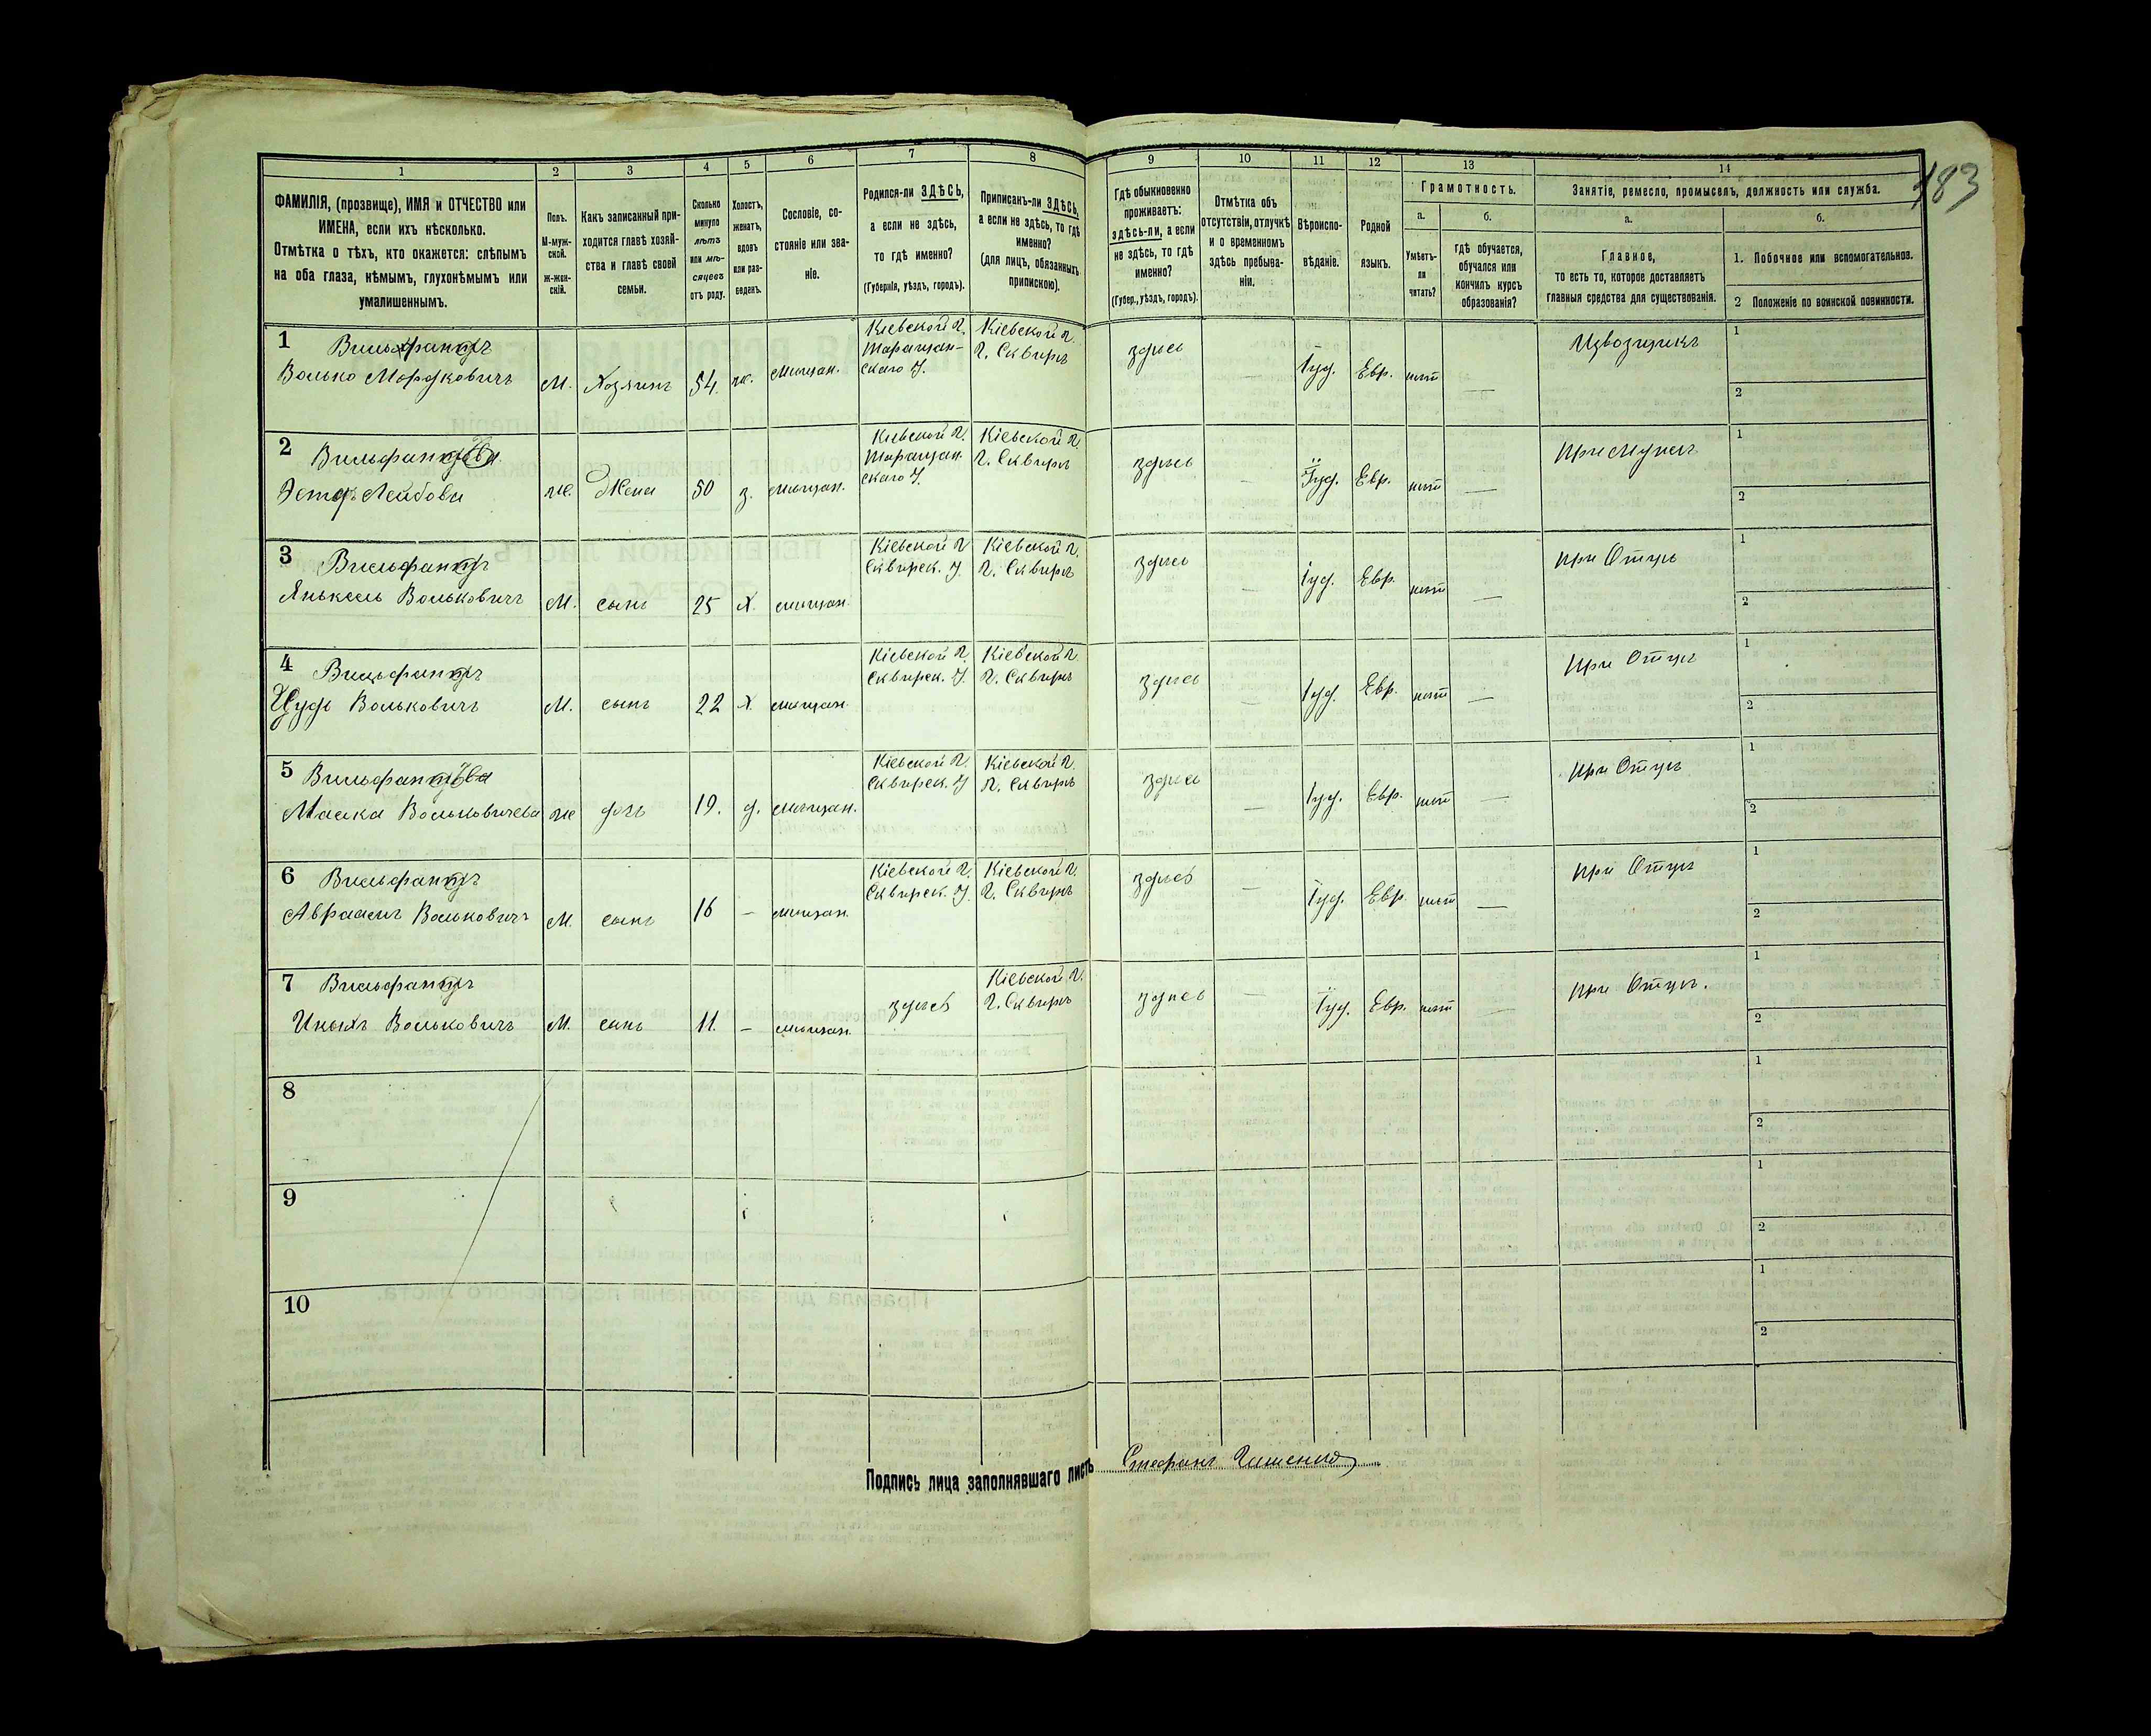 183
1 2 3 4 5 6 7 8 9 10 11 12 13 14
ФАМИЛІЯ, (прозвище), ИМЯ и ОТЧЕСТВО или
ИМЕНА, если ихъ нѣсколько.
Отмѣтка о тѣхъ, кто окажется: слѣпымъ
на оба глаза, нѣмымъ, глухонѣмымъ или
умалишеннымъ.
Полъ.
М-муж-
ской.
Ж-жен-
скій.
Какъ записанный при-
ходится главѣ хозяй-
ства и главѣ своей
семьи.
Сколько
минуло
лѣтъ
или мѣ-
сяцевъ
отъ роду.
Холостъ,
женатъ,
вдовъ
или раз-
веденъ.
Сословіе, со-
стояніе или зва-
ніе.
Родился-ли ЗДѢСЬ,
а если не здѣсь,
то гдѣ именно?
(Губернія, уѣздъ, городъ).
Приписанъ-ли ЗДѢСЬ,
а если не здѣсь, то гдѣ
именно?
(для лицъ, обязанныхъ
припискою).
Гдѣ обыкновенно
проживаетъ:
здѣсь-ли, а если
не здѣсь, то гдѣ
именно?
(Губер., уѣздъ, городъ).
Отмѣтка объ
отсутствіи, отлучкѣ
и о временномъ
здѣсь пребыва-
ніи.
Вѣроиспо-
вѣданіе.
Родной
языкъ.
Грамотность.
а.
Умѣетъ-
ли
читать?
б.
Гдѣ обучается,
обучался или
кончилъ курсъ
образованія?
Занятіе, ремесло, промыселъ, должность или служба.
а.
Главное,
то есть то, которое доставляетъ
главныя средства для существованія.
б.
1. Побочное или вспомогательное.
2 Положеніе по воинской повинности.
1
Волько Мордковичъ М. Хозяинъ 54. ж. мѣщан.
Кіевской г.
Таращан-
скаго У.
Кіевской г.
г. Сквирѣ
здѣсь — Іуд. Евр. нѣтъ — Извозчикъ
1
2
2
Лейбова ж. Жена 50 з. мѣщан.
Кіевской г.
Таращан.
скаго У.
Кіевской г.
г. Сквирѣ
здѣсь — Іуд. Евр. нѣтъ — при Мужѣ
1
2
3
Янкель Вольковичъ М. сынъ 25 х. мѣщан.
Кіевской г.
Сквирск. У.
Кіевской г.
г. Сквирѣ
здѣсь — Іуд. Евр. нѣтъ — при Отцѣ
1
2
4
Вольковичъ М. сынъ 22 х. мѣщан.
Кіевской г.
Сквирск. У.
Кіевской г.
г. Сквирѣ
здѣсь — Іуд. Евр. нѣтъ — при Отцѣ
1
2
5
Вольковичева ж дочь 19. д. мѣщан.
Кіевской г.
Сквирск. У
Кіевской г.
г. Сквирѣ
здѣсь — Іуд. Евр. нѣтъ — при Отцѣ
1
2
6
Авраамъ Вольковичъ М. сынъ 16 — мѣщан.
Кіевской г.
Сквирск. У.
Кіевской г.
г. Сквирѣ
здѣсь — Іуд. Евр. нѣтъ — при Отцѣ
1
2
7
Вольковичъ М. сынъ 11. — мѣщан.
здѣсь
Кіевской г.
г. Сквирѣ
здѣсь — Іуд. Евр. нѣтъ — при Отцѣ.
1
2
8
1
2
9
1
2
10
1
2
Подпись лица заполнявшаго листъ Стефанъ